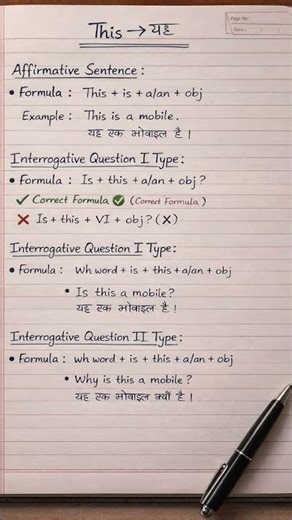 This → यह
Page No:
Date:
Affirmative Sentence :
• Formula : This + is + a/an + obj
Example : This is a mobile.
यह एक मोबाइल है ।
Interrogative Question I Type :
• Formula : Is + this + a/an + obj ?
✓ Correct Formula ✅ (Correct Formula)
❌ Is + this + VI + obj ? (X)
Interrogative Question I Type :
• Formula : Wh word + is + this + a/an + obj
• Is this a mobile?
यह एक मोबाइल है ।
Interrogative Question II Type :
• Formula : Wh word + is + this + a/an + obj
• Why is this a mobile ?
यह एक मोबाइल क्यों है ।